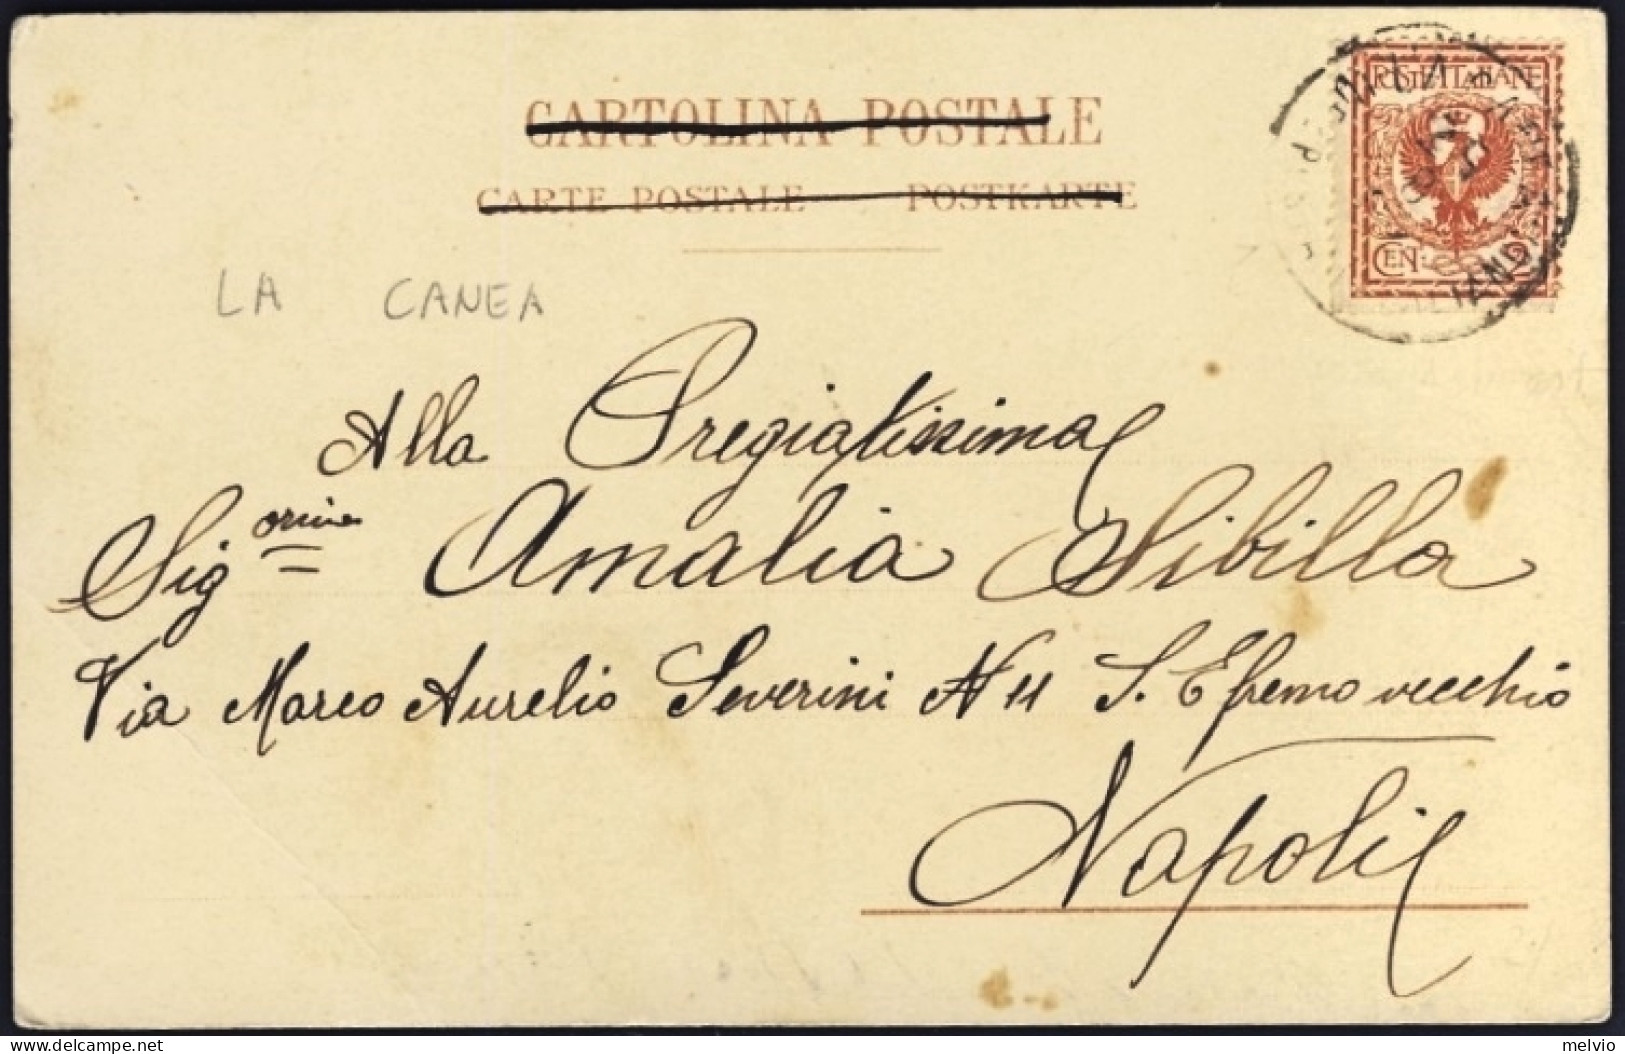 CARTOLINA POSTALE
CARTE POSTALE POSTKARTE
POSTE ITALIANE
CEN. 2
LA CANEA
Alla Pregiatissima
Sig.orina Amalia Sibilla
Via Marco Aurelio Severini N 11 S. Efremo vecchio
Napoli
delcampe.net
melvio